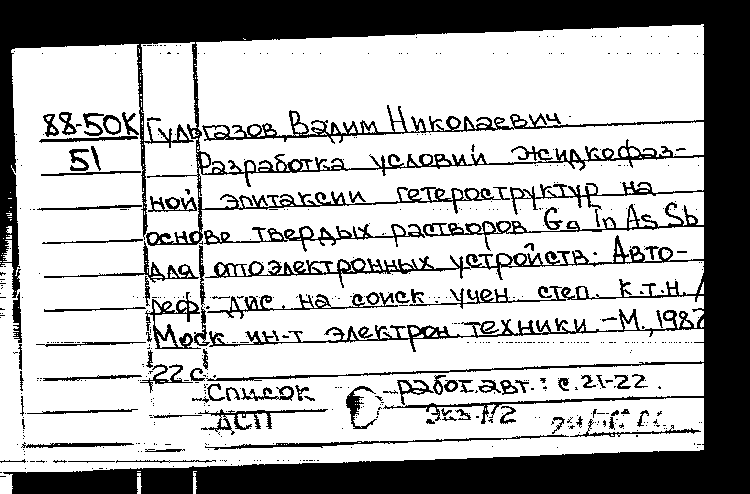 88-50К Гульгазов, Вадим Николаевич.
51 Разработка условий жидкофаз-
ной эпитаксии гетероструктур на
основе твердых растворов Ga In As Sb
для отоэлектронных устройств: Авто-
реф. дис. на соиск. учен. степ. к.т.н. /
Моск. ин-т электрон. техники. -М., 1987
22 с.
Список работ авт.: с. 21-22.
ДСП Экз. №2